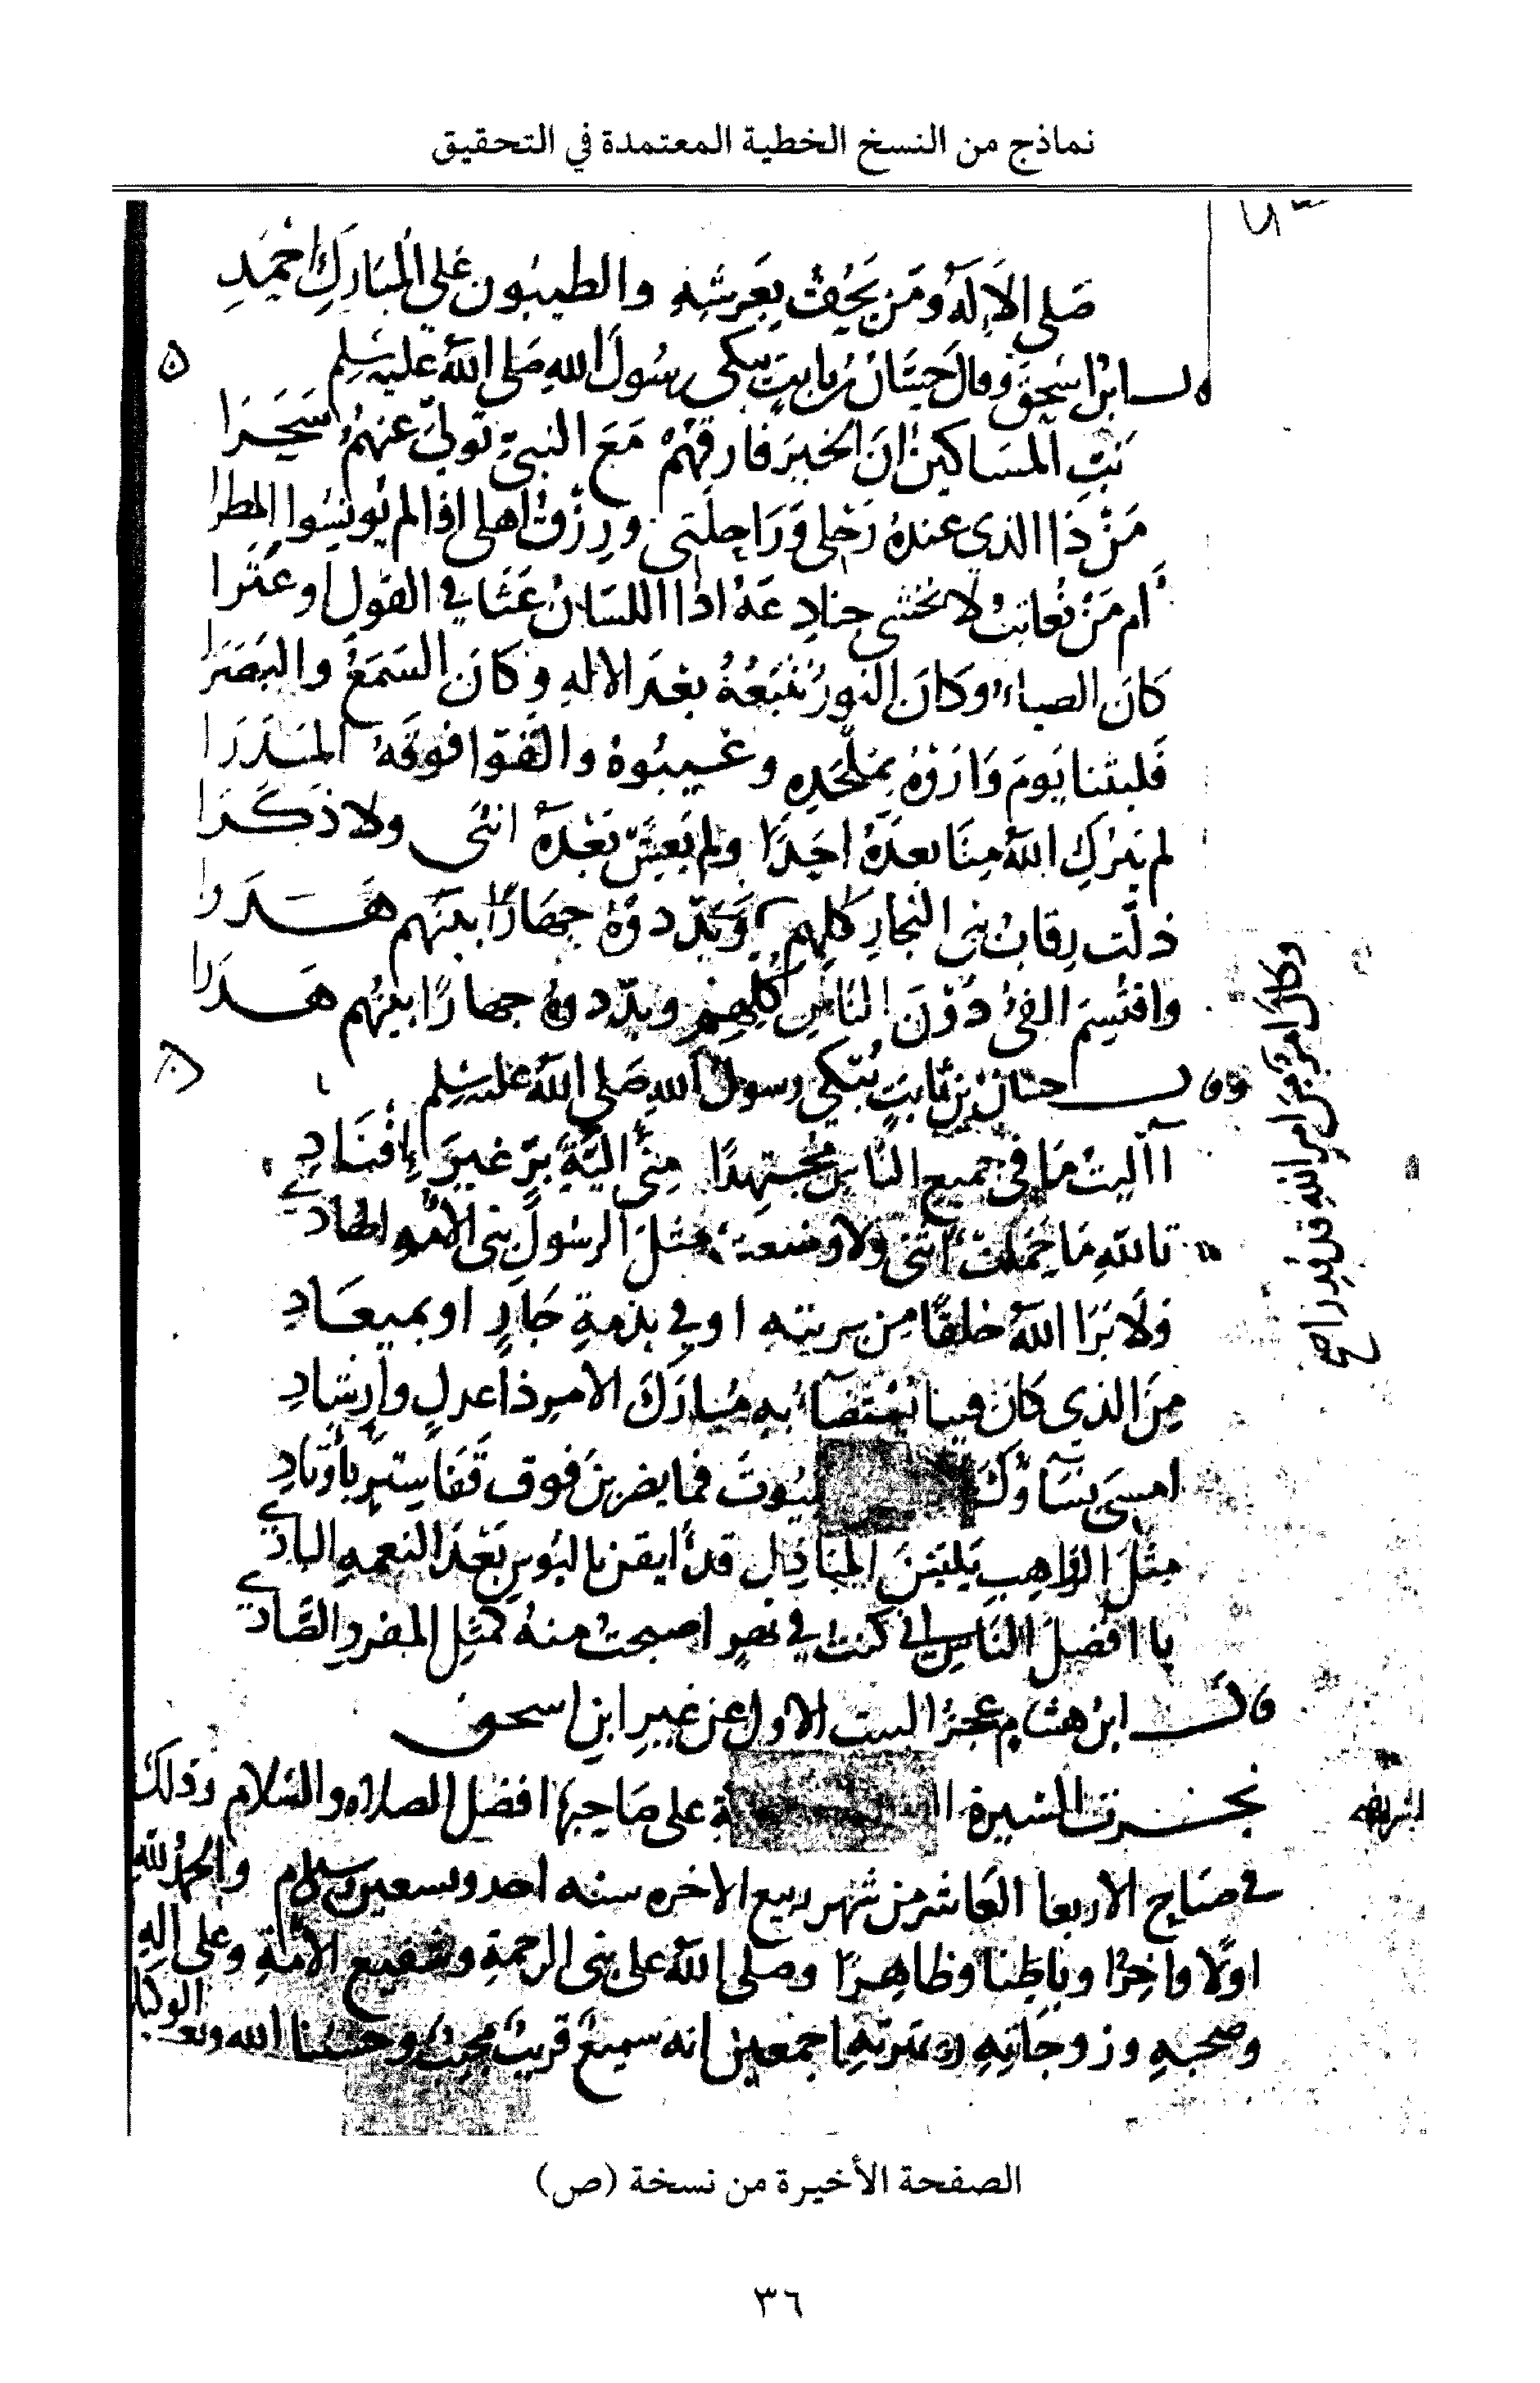 نماذج من النسخ الخطية المعتمدة في التحقيق
صَلى الاَلهُ ومَن يَحُفّ بِعَرشِهِ والطيبُون عَلى المُبَارَكِ احْمَدِ
ابنُ اسحق وقال حسّان بن ثابت يبكى رسُولَ اللهِ صَلى اللهُ عليه وسلم
نَبِّ المسَاكينَ انَ الخيرَ فارقهُمْ مَعَ النبىّ تولىّ عنهُمُ سَحَرَا
مَنْ ذَا الذي عندهُ رَحْلى وَرَاحِلَتى ورِزْقُ اهلى اذا لم يُونسُوا المطرا
أم مَنْ نُعاتبُ لا نخشى جنادِعَهُ اذا اللسَانُ عَتَا في القول او عَثَرا
كانَ الضياءَ وكانَ النورَ نتبَعُهُ بعْدَ الالهِ وكانَ السَمعَ والبَصَرَا
فَليتنا يَومَ وَارَوْهُ بمَلْحَدِهِ وغَيبُوهُ والقَوا فوقَهُ المَدَرَا
لم يتركِ اللهُ مِنَّا بعدَهُ احَدًا ولم يَعِشْ بَعْدَهُ انثى ولا ذَكَرَا
ذلّت رِقابُ بنى النجارِ كلِهم وَبَدّدوهُ جهَارًا بينَهُم هَدَرا
واقتُسِمَ الفىُ دُوْنَ النَاسِ كُلِهِمِ وبدّدوهُ جهارًا بينَهُم هَدَرا
وقال حسّانُ بنُ ثابتٍ يُبَكي رسولَ اللهِ صَلى اللهُ عليه وسلم
آاليتُ مَا في جميعِ النَّاسِ مُجتهِدًا مِنّى اليَّةَ بَرٍّ غيرَ إفنَادِ
تاللهِ مَا حَمَلت انثى ولا وضعت مثلَ الرسُولِ نبى الأمة الهادي
وَلَا بَرَا اللهُ خلقًا من بريتهِ اوفي بذمةِ جَارٍ او بميعَادِ
مِنَ الذي كانَ فينا يُستَضَآءُ بهِ مُبارَكَ الامرِ ذا عدلٍ وإرشادِ
امسى نسَاؤكَ البيُوتَ فما يضربنَ فوق قَفَا سِترٍ بأوتادِ
مِثلَ الرّواهِبِ يَلبَسْنَ المبَاذِلَ قد ايقنَّ بالبُوسِ بَعْدَ النعمهِ البادي
يا افضلَ النَاسِ انى كنتُ في نهرٍ اصبحتُ منهُ كمثلِ المفردِ الصَّادي
قال ابنُ هشام عجزُ البيت الاول عن غيرِ ابنِ اسحق
نجزت السيرة على صَاحِبها افضل الصلاه والسَلام وذلكَ
في صَبَاحِ الاربعا العَاشر من شهر ربيع الاخره سنه احد وتسعين والحمدُ للهِ
اولًا واخِرًا وباطِنا وظاهِرًا وصَلى اللهُ على نبى الرحمةِ وشفيعِ الامّةِ وعلى الهِ
وصحبهِ وزوجَاتِهِ وعترتهِ اجمعين انهُ سميعٌ قريبٌ مجيبٌ وحسبُنا الله ونعم الوكيل
وكانَ امرٌ مِن امرِ اللهِ قد
الشريفه
الصفحة الأخيرة من نسخة (ص)
٣٦